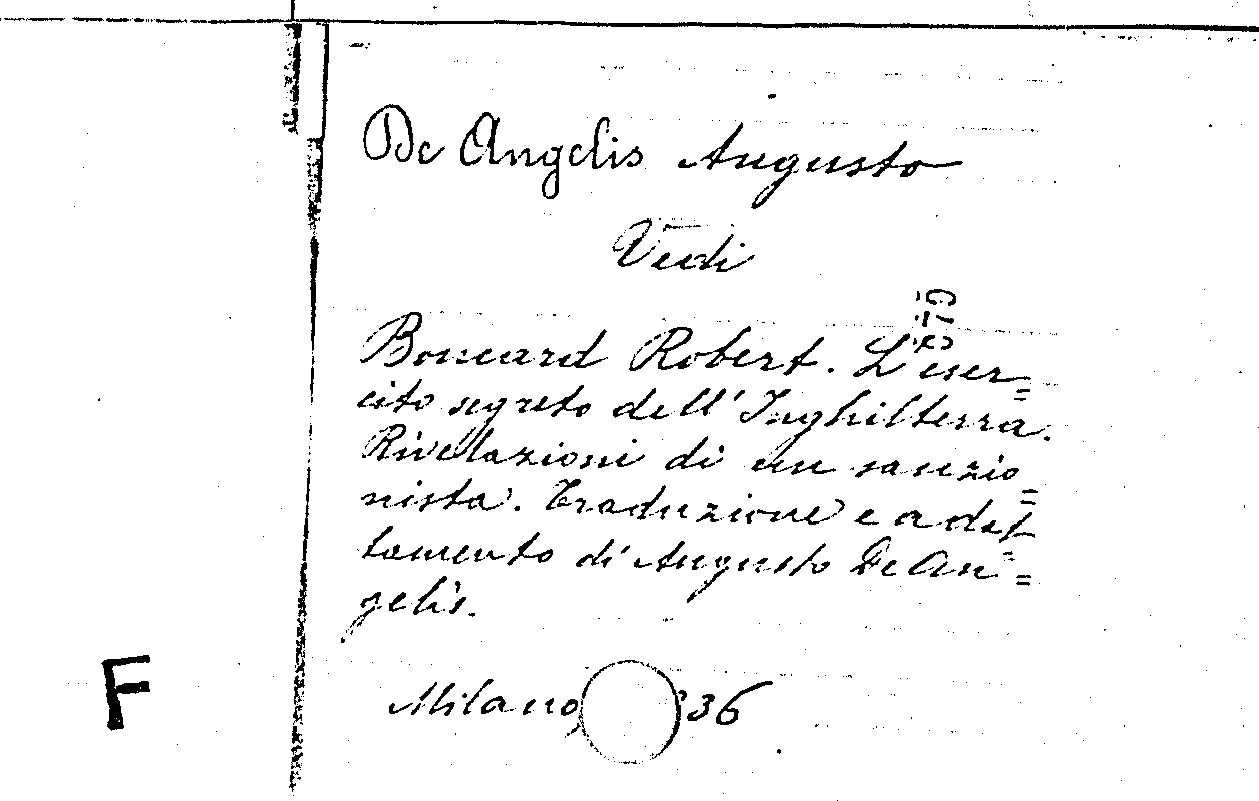 De Angelis Augusto
Vedi
Boucard Robert. L'eser=
cito segreto dell'Inghilterra.
Rivelazioni di un sanzio=
nista. Traduzione e adat=
tamento di Augusto De An=
gelis.
Milano, 936
F